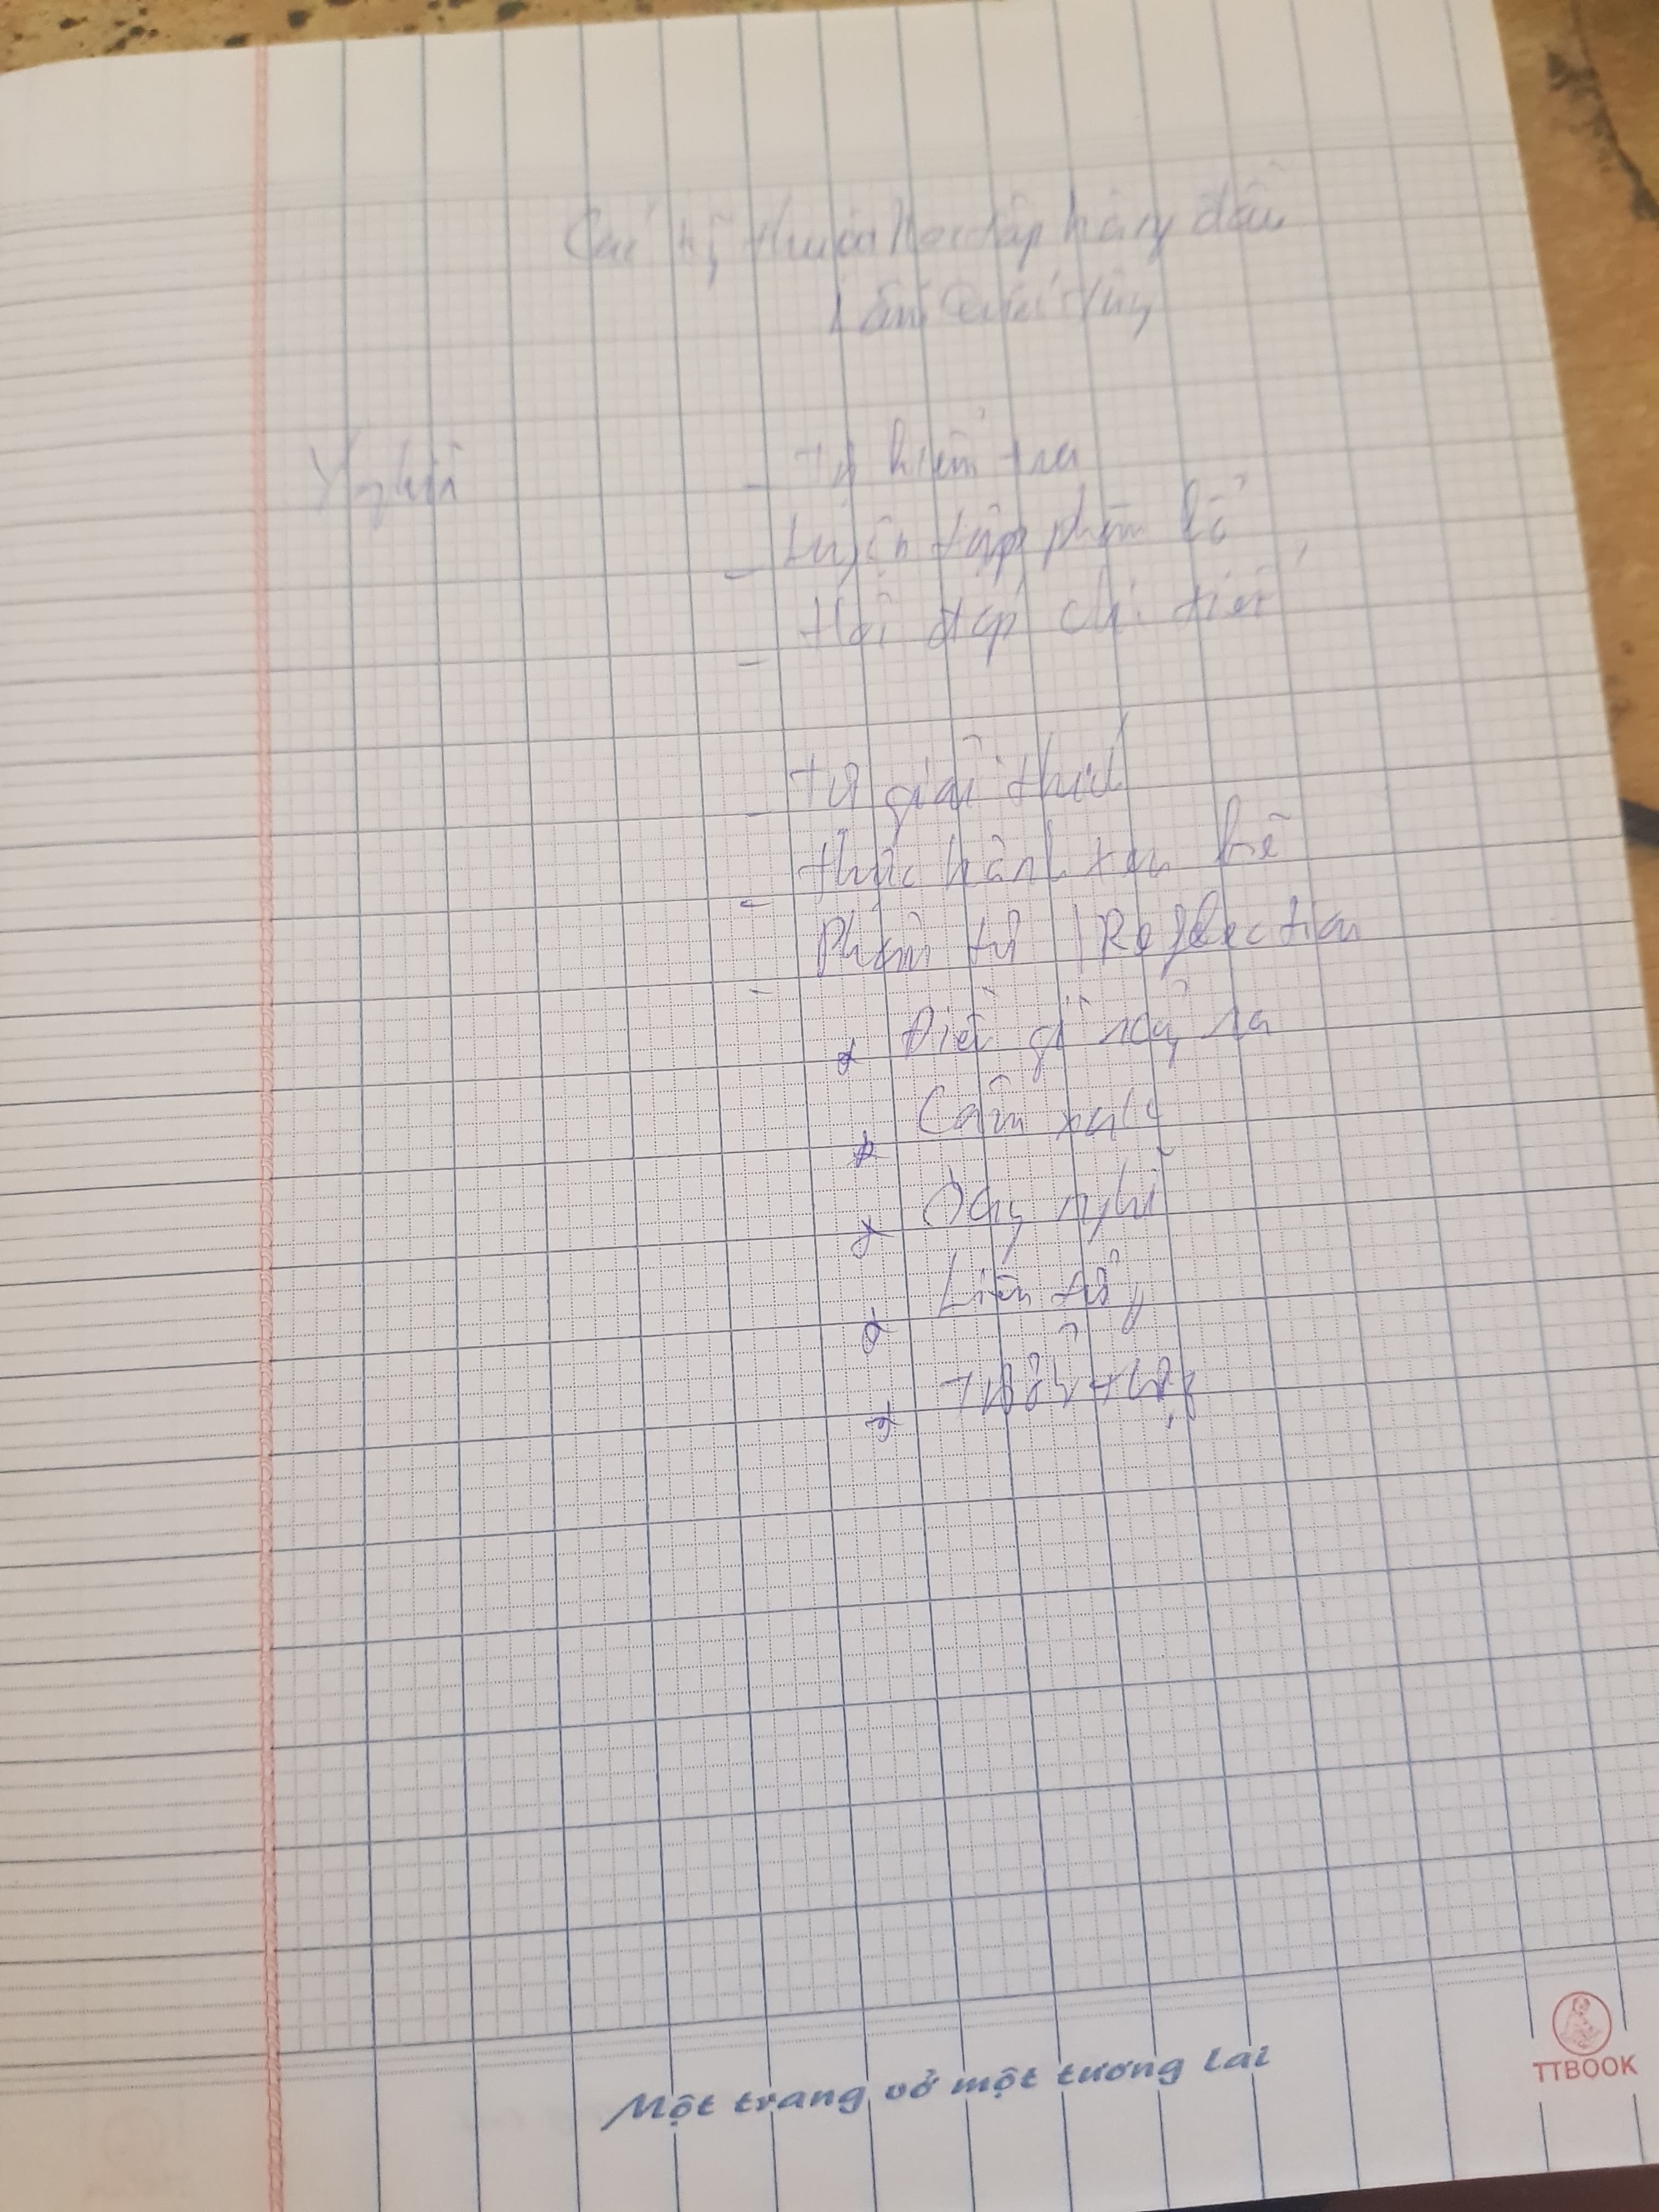 Các kỹ thuật học tập hàng đầu
- Tự kiểm tra
- Luyện tập phân bổ
- Hỏi đáp chi tiết
- Tự giải thích
- Thực hành xen kẽ
- Phản tư | Reflection
* Điều gì xảy ra
* Cảm xúc
* Suy nghĩ
* Liên tưởng
Một trang vở một tương lai
TTBOOK